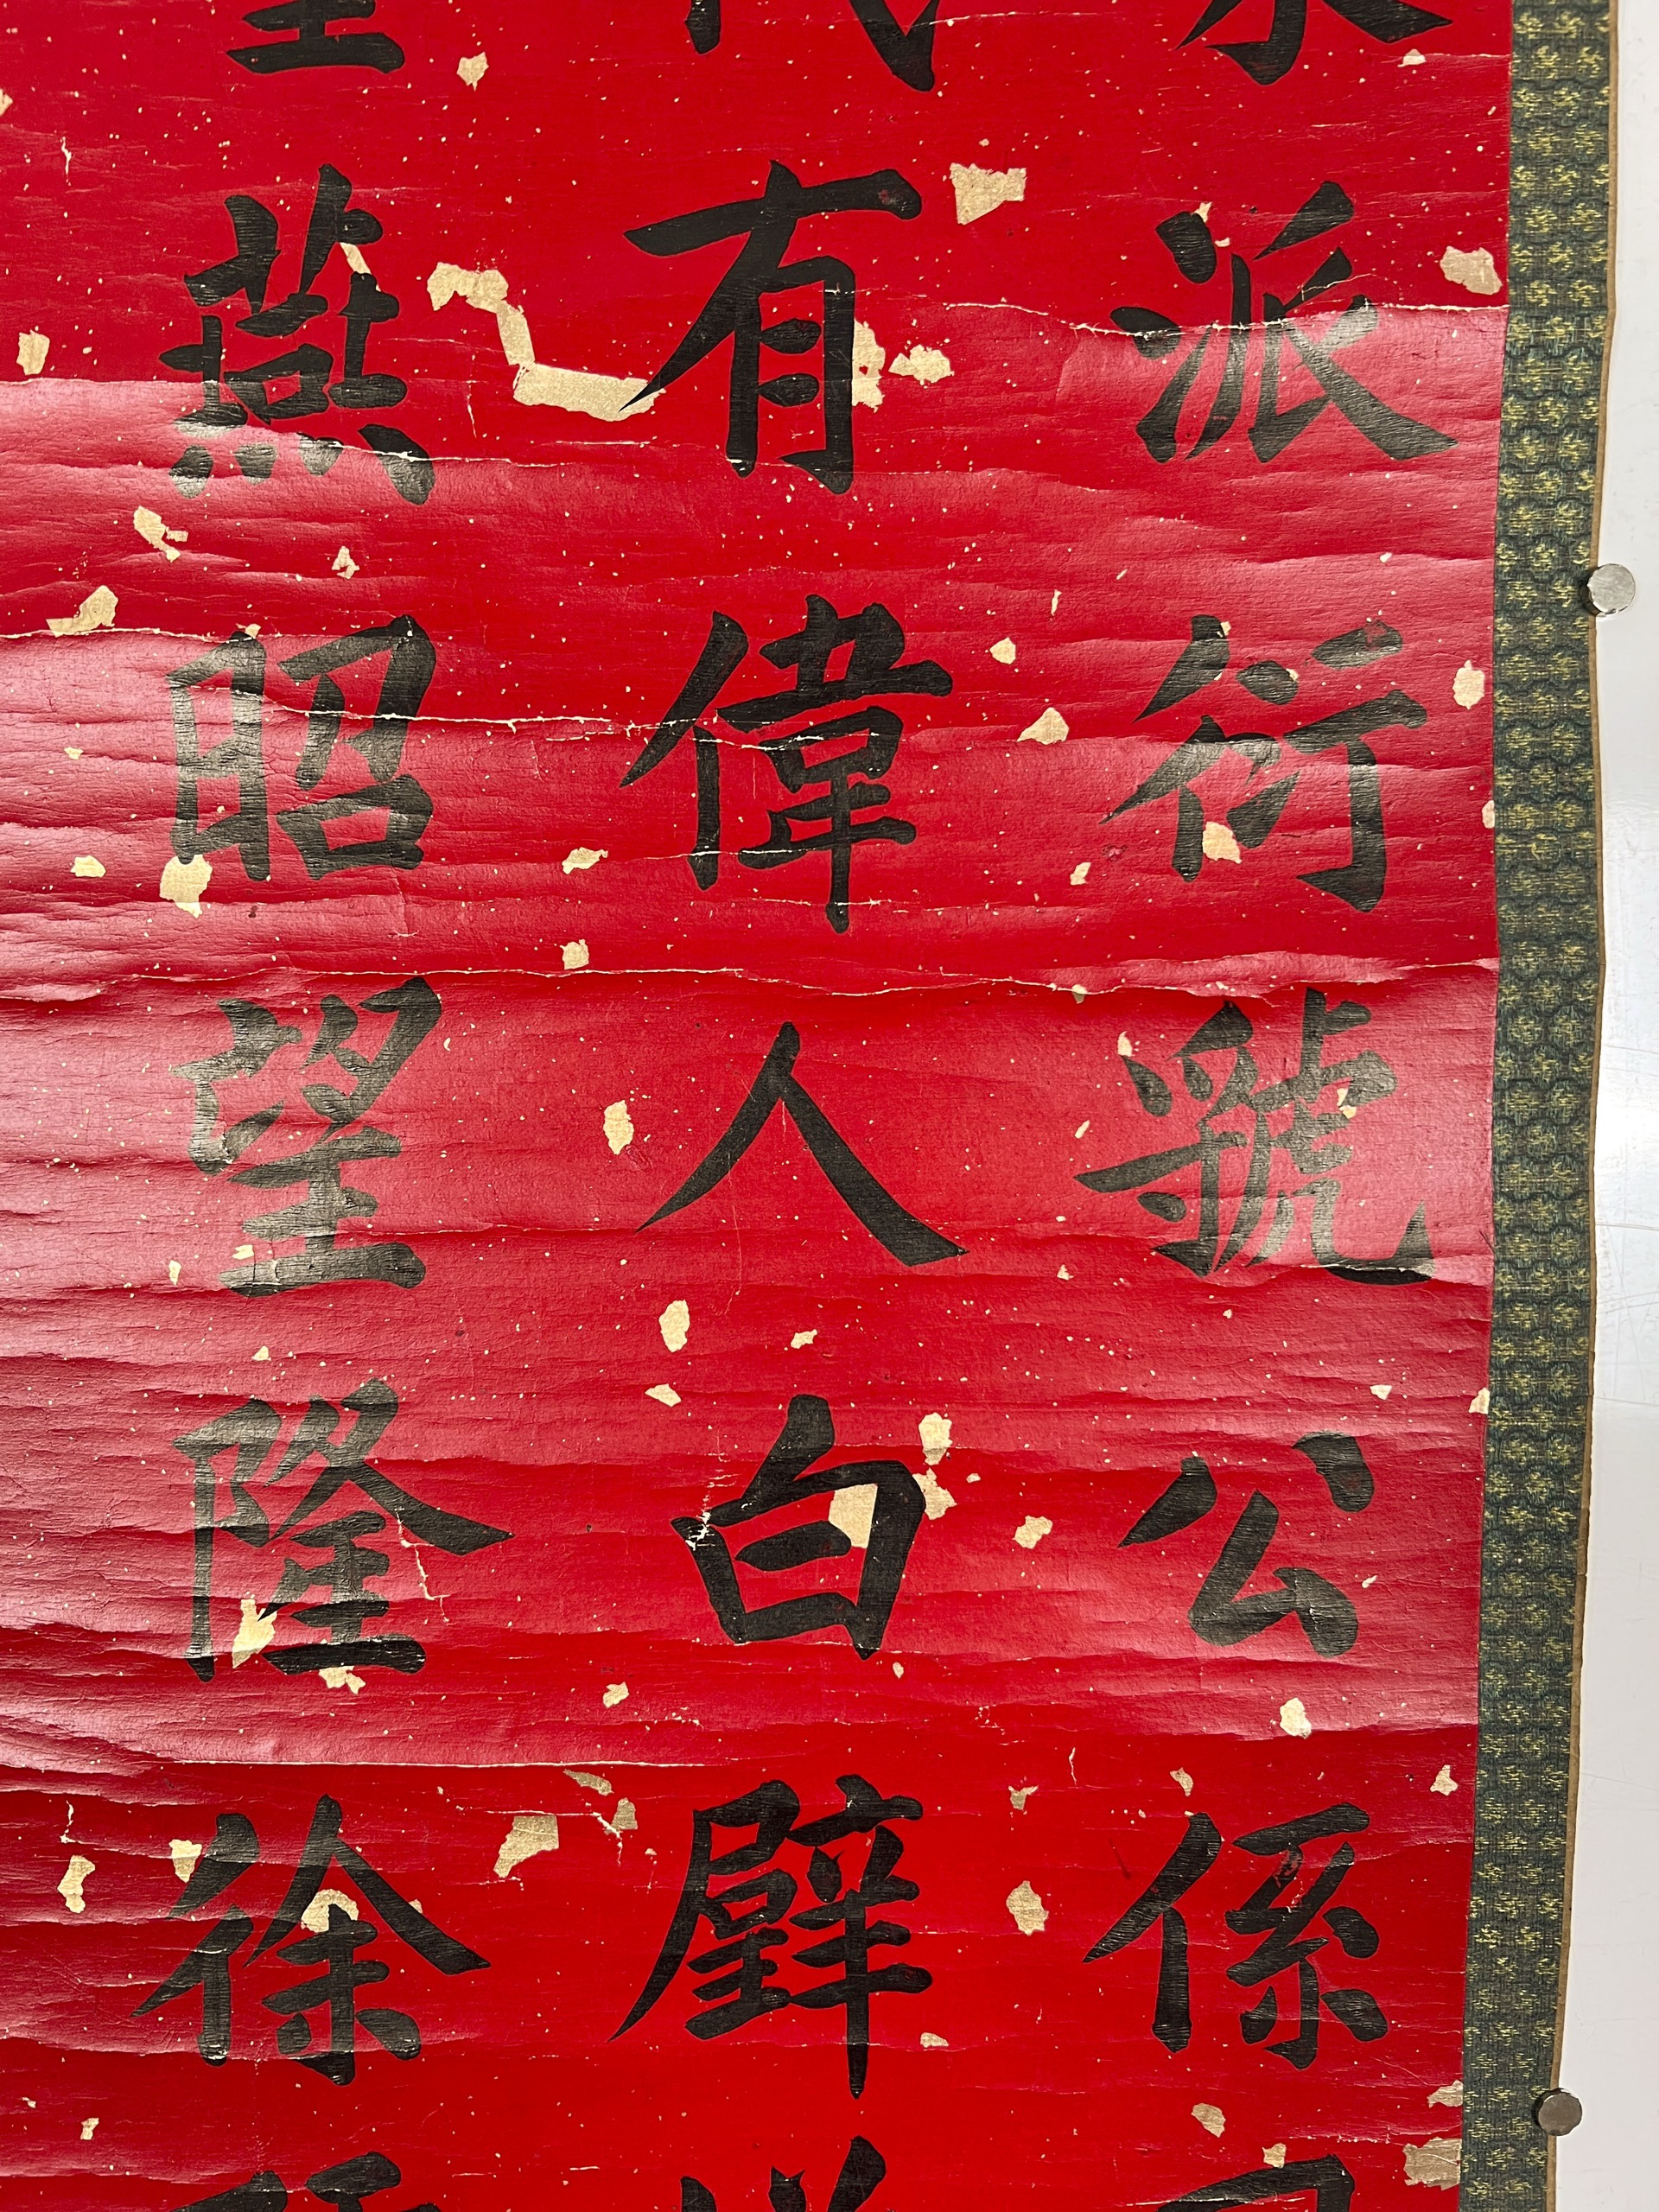 派衍虢公係
有偉人白璧
燕昭望隆徐